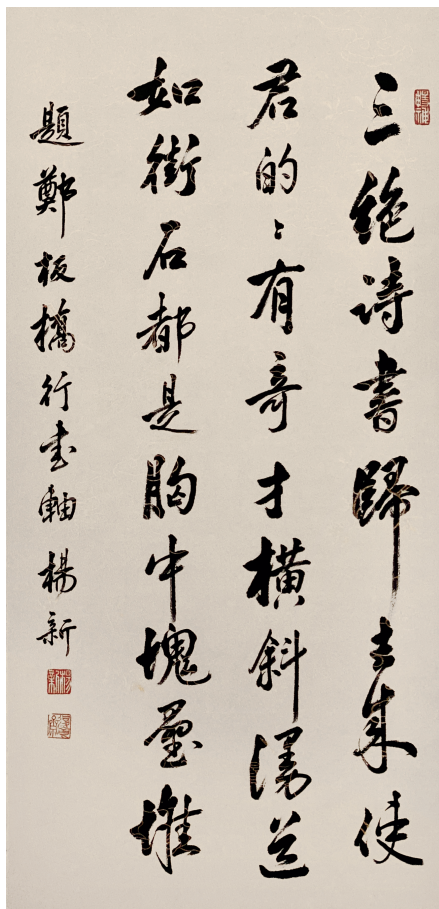 三絶诗書歸去来使
君的々有奇才横斜漫道
如街石都是胸中塊壘堆
題鄭板橋行书軸 楊新